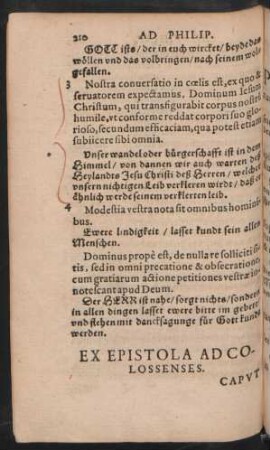 210 AD PHILIP.
GOTT ists / der in euch wircket / beyde das
wöllen vnd das volbringen / nach seinem wol-
gefallen.
3 Nostra conuersatio in cœlis est, ex quo &
seruatorem expectamus. Dominum Iesum
Christum, qui transfigurabit corpus nostrū
humile, vt conforme reddat corpori suo glo-
rioso, secundum efficaciam, qua potest etiam
subiicere sibi omnia.
Vnser wandel oder bürgerschafft ist in dem
Himmel / von dannen wir auch warten deß
Heylandts Jesu Christi deß Herren / welcher
vnsern nichtigen Leib verkleren wirdt / daß er
ähnlich werde seinem verklerten leib.
4 Modestia vestra nota sit omnibus homini-
bus.
Ewere lindigkeit / lasset kundt sein allen
Menschen.
Dominus propè est, de nulla re solliciti si-
tis, sed in omni precatione & obsecratione
cum gratiarum actione petitiones vestræ in-
notescant apud Deum.
Der HERR ist nahe / sorgt nichts / sondern
in allen dingen lasset ewere bitte im gebett
vnd flehen mit dancksagunge für Gott kundt
werden.
EX EPISTOLA AD CO-
LOSSENSES.
CAPVT